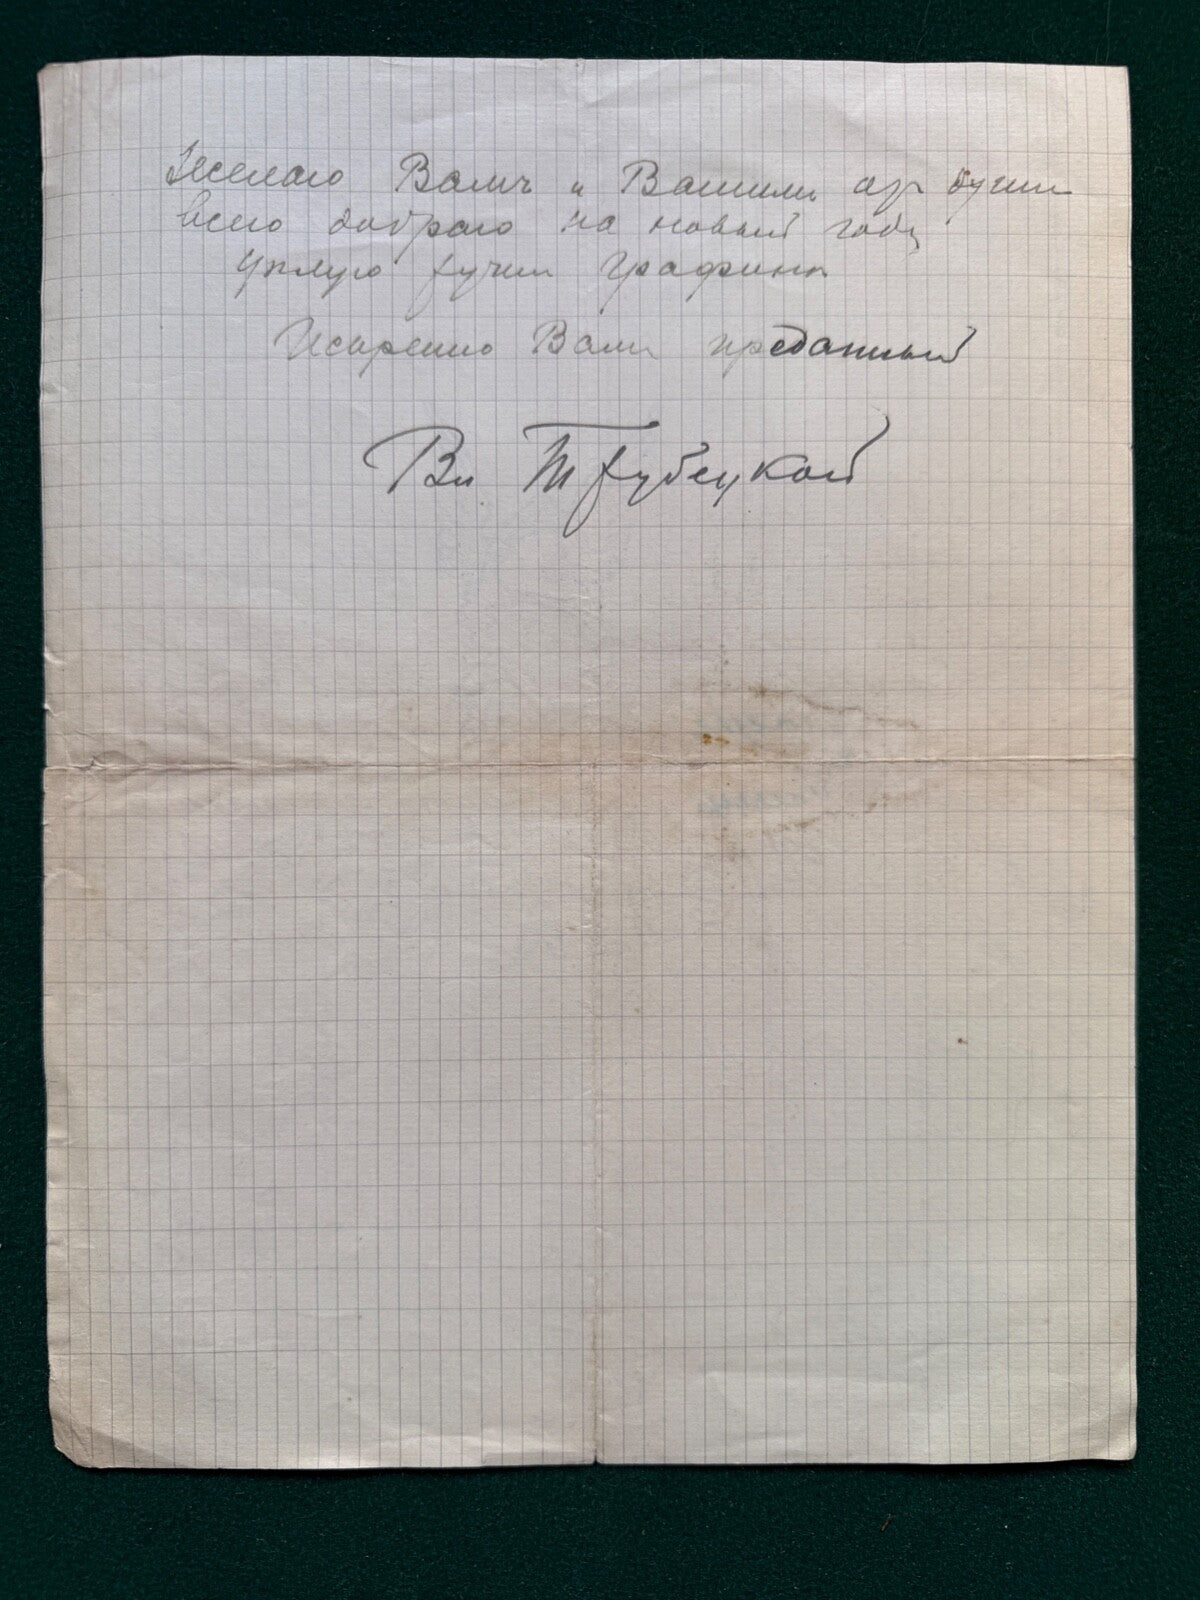 Желаю Вамъ и Вашимъ от души
всего добраго на новый годъ
Цѣлую ручки Графинѣ
Искренно Вамъ преданный
Вл. Трубецкой